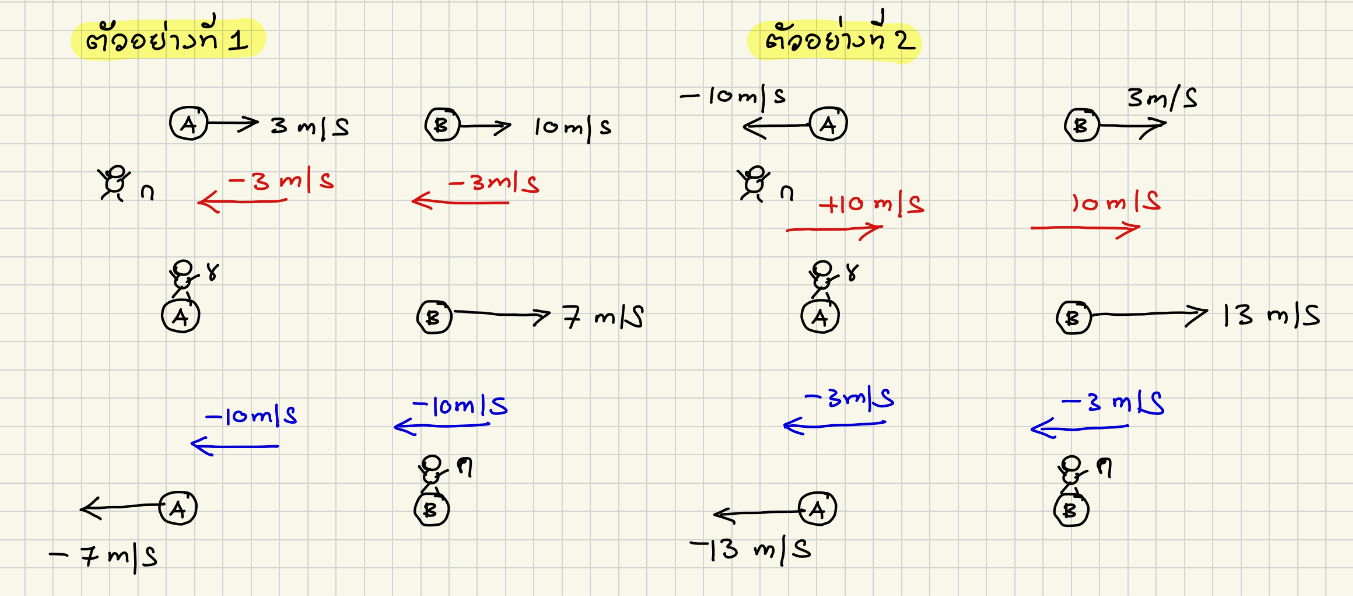 ตัวอย่างที่ 1
A 3 m/s B 10 m/s
ก -3 m/s -3 m/s
ข
A B 7 m/s
-10 m/s -10 m/s
ค
A B
-7 m/s
ตัวอย่างที่ 2
-10 m/s A B 3 m/s
ก +10 m/s 10 m/s
ข
A B 13 m/s
-3 m/s -3 m/s
ค
A B
-13 m/s